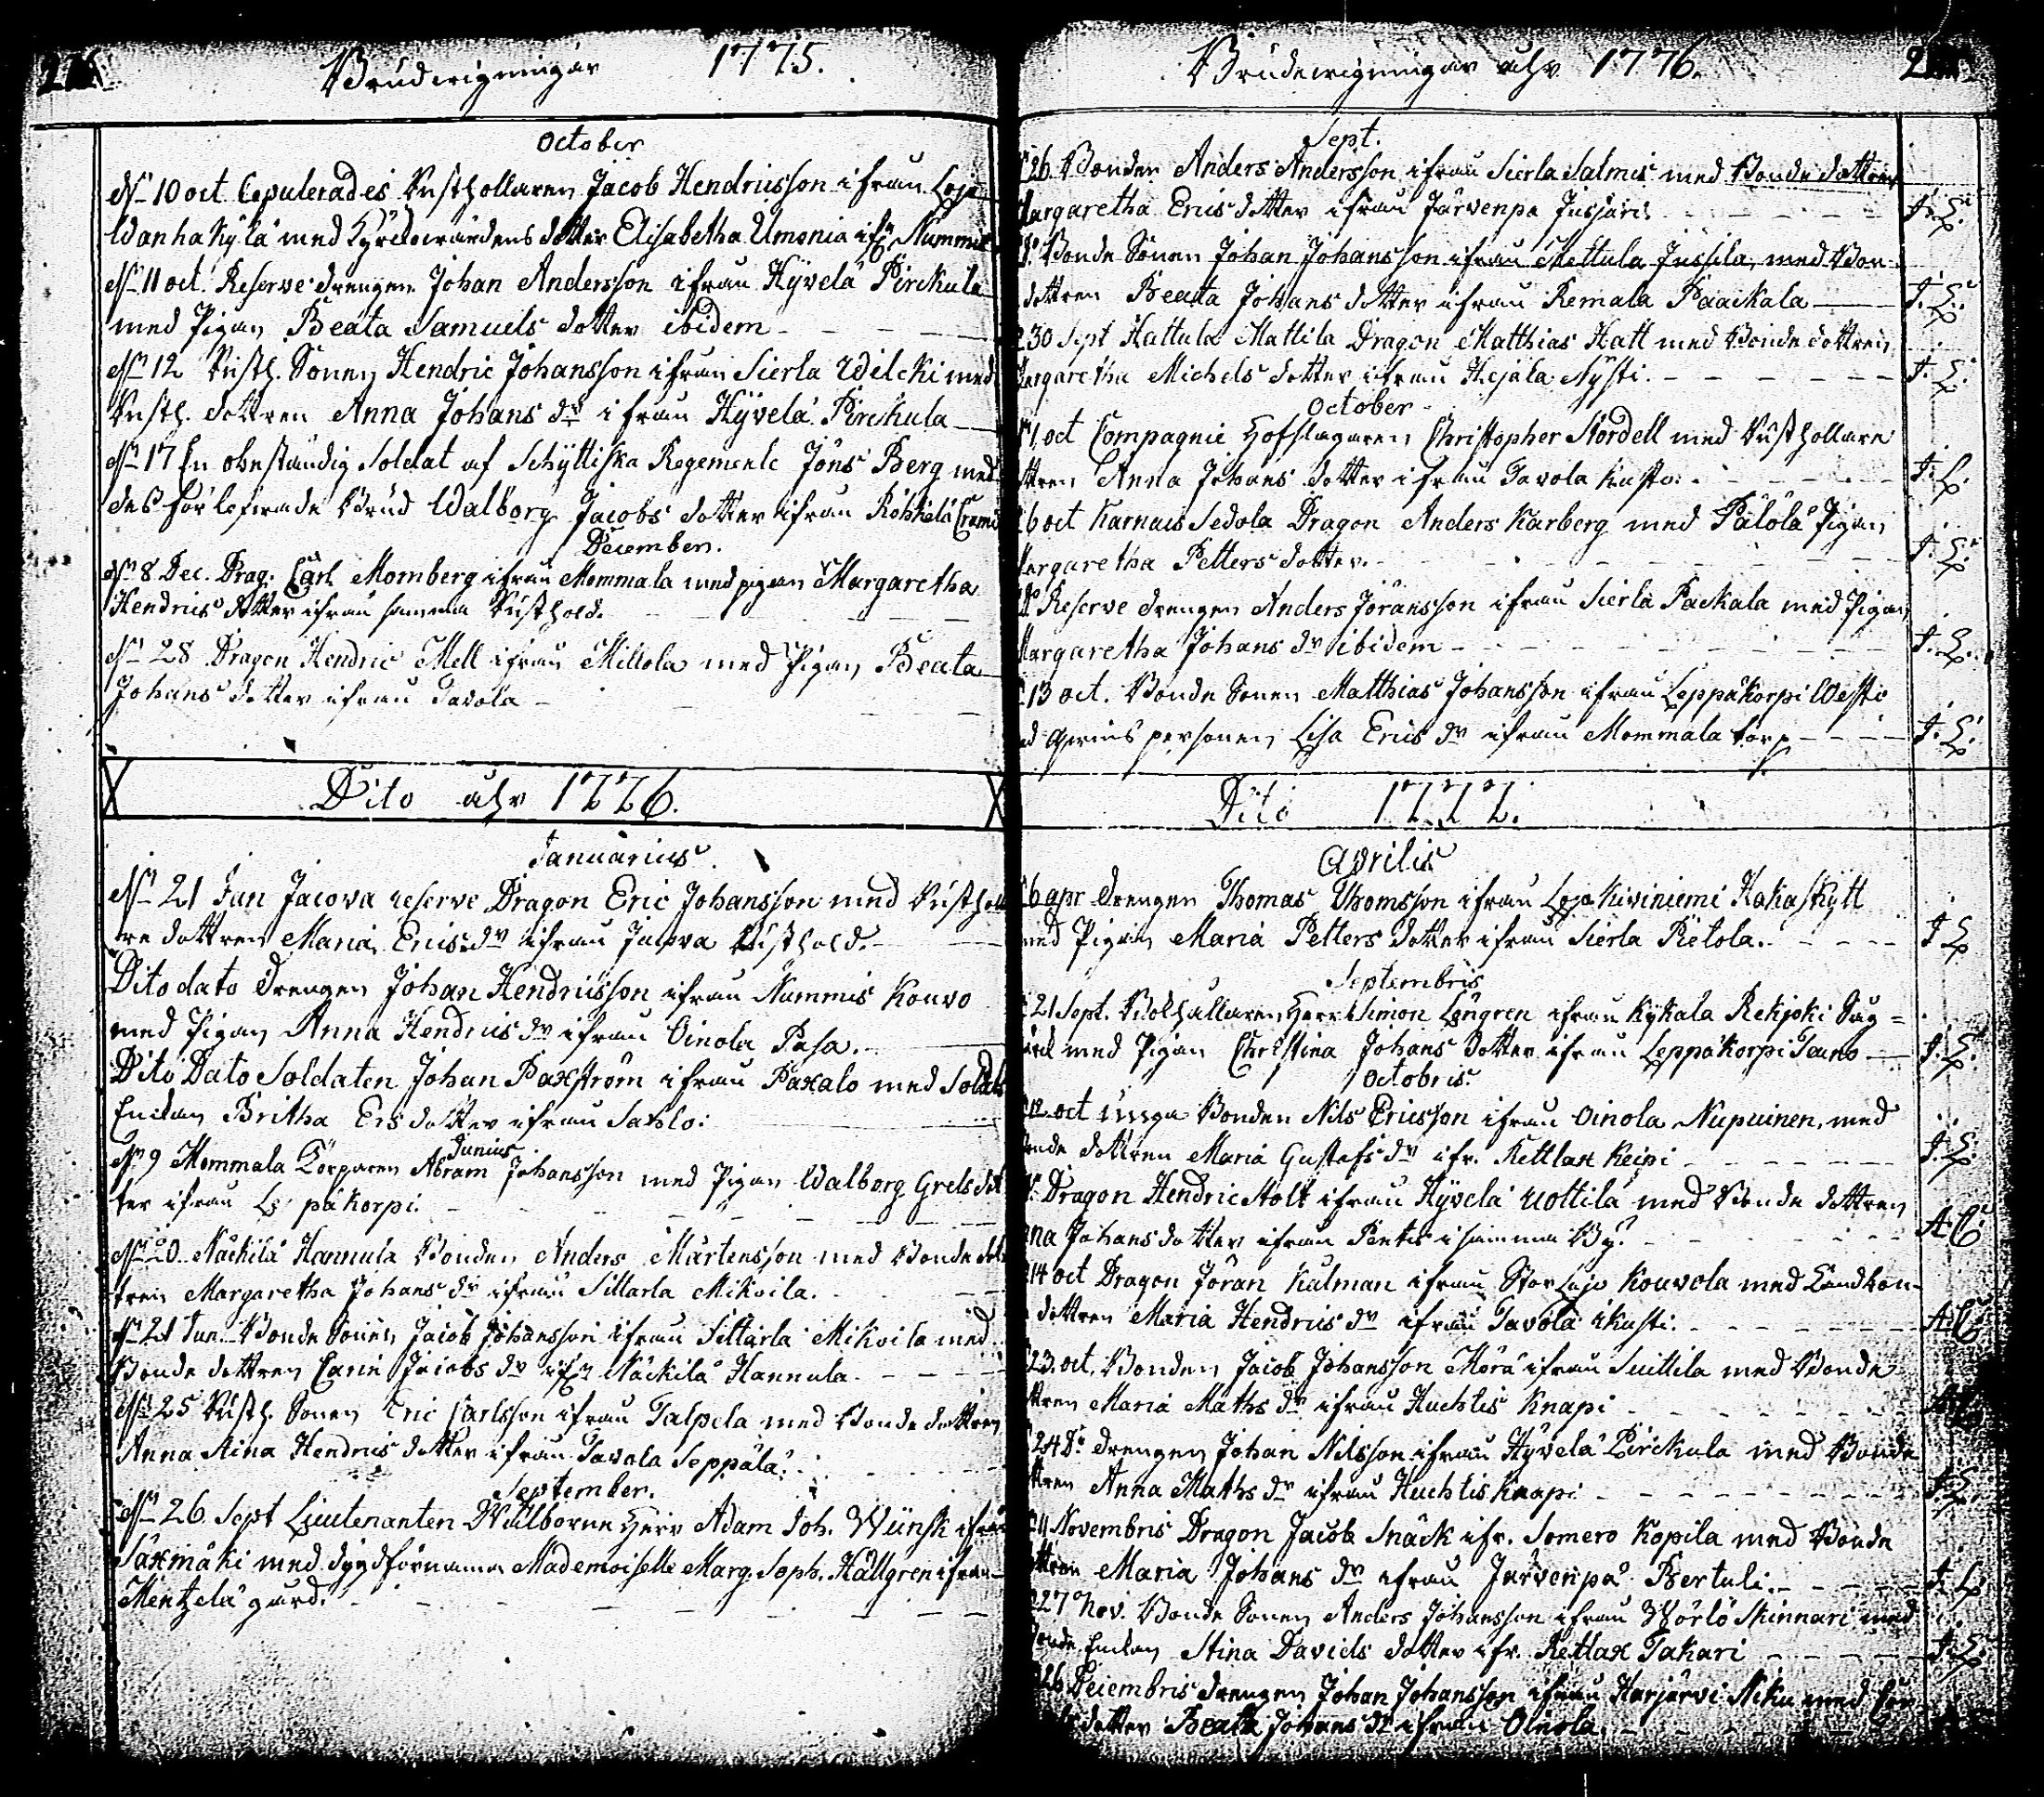 Brudwigningar 1775.
October
dn 10 oct. Copulerades Rusthollaren Jacob Hendricsson ifrån Lojo
Wanhakylä med Kyrkowärdens dotter Elisabetha Umonia ifrn Nummis
dn 11 oct. Reserve drengen Johan Andersson ifrån Hyvelä Pirckula
med Pigan Beata Samuels dotter ibidem
dn 12 Rusth. Sonen Hendric Johansson ifrån Sierla Wilcki med
Rusth. dottren Anna Johans dr ifrån Hyvelä Pirckula
dn 17 En obeständig Soldat af Schyttiska Regemente Jöns Berg med
des förlofwade Brud Walborg Jacobs dotter ifrån Röhkelä
December.
dn 8 Dec. Drag. Carl Momberg ifrån Mommala med pigan Margaretha
Hendrics dotter ifrån samma Rusthold.
dn 28 Dragon Hendric Mell ifrån Millola med Pigan Beata
Johans dotter ifrån Tavola
Dito åhr 1776.
Januarius
dn 21 Jan Jacova reserve Dragon Eric Johansson med Rusthol
re dottren Maria Erics dr ifrån Jacova Rusthold.
Dito dato drengen Johan Hendricsson ifrån Nummis Kouvo
med Pigan Anna Hendrics dr ifrån Oinola Pasa.
Dito Dato Soldaten Johan Paxström ifrån Paxalo med Soldats
Enckan Britha Ers dotter ifrån Saxlo.
Junius
dn 9 Mommala Torparen Abram Johansson med Pigan Walborg Grels dot
ter ifrån Leppäkorpi.
dn 20 Näckilä Hannula Bonden Anders Mårtensson med Bonde dot
tren Margaretha Johans dr ifrån Sittarla Mikoila.
dn 21 Jun. Bonde Sonen Jacob Johansson ifrån Sittarla Mikoila med
Bonde dottren Carin Jacobs dr ifrn Näckilä Hannula.
dn 25 Rusth. Sonen Eric Carlsson ifrån Talpela med Bonde dottren
Anna Stina Hendrics dotter ifrån Tavola Seppälä.
September.
dn 26. Sept Lieutenanten Wälborne Herr Adam Joh. Wünsk ifrån
Saxmäki med dygdförnamma Mademoiselle Marg. Soph. Hällgren ifrån
Mentzelä gård.
Brudwigningar åhr 1776.
Sept.
26. Bonden Anders Andersson ifrån Sierla Salmis med Bonde dottren
Margaretha Erics dotter ifrån Järvenpä Jusjaris J. L.
do. Bonde Sonen Johan Johansson ifrån Mettula Jussila, med Bon-
dottren Beata Johans dotter ifrån Remala Paackala J. L.
30 Sept Hattula Mattila Dragon Matthias Hatt med Bonde dottren
Margaretha Michels dotter ifrån Hejala Nysti. J. L.
October
1 oct Compagnie Hofslagaren Christopher Nordell med Rusthollare
ttren Anna Johans dotter ifrån Tavola Kasto. J. L.
6 oct Karnais Sedola Dragon Anders Karberg med Pälölä Pigan
Margaretha Petters dotter. J. L.
do Reserve drengen Anders Jöransson ifrån Sierla Packala med Pigan
Margaretha Johans dr ibidem J. L.
13 oct. Bonde Sonen Matthias Johansson ifrån Leppäkorpi Westo
personen Lisa Erics dr ifrån Mommala torp J. L.
Dito 1777.
Aprilis
6 apr drengen Thomas Thomsson ifrån Lojo Kiviniemi Kakaskytt
med Pigan Maria Petters dotter ifrån Sierla Pietola. J L
Septembris
21 Sept. Bokhållaren Herr Simon Lengren ifrån Kykala Rekijoki Säg=
med Pigan Christina Johans dotter ifrån Leppäkorpi Tauno J. L.
Octobris
12 oct unga Bonden Nils Ericsson ifrån Oinola Nupuinen, med
Bonde dottren Maria Gustafs dr ifr. Kettlax Keipi J. L.
Dragon Hendric Molt ifrån Hyvelä Uottila med Bonde dottren
na Johans dotter ifrån Pentis i samma By.
14 oct Dragon Jöran Kalman ifrån Stor Lojo Kouvola med
dottren Maria Hendrics dr ifrån Tavola Kasti.
23 oct. Bonden Jacob Johansson Mörä ifrån Suittila med Bonde
ttren Maria Maths dr ifrån Huchtis Knapi
24 do drengen Johan Nilsson ifrån Hyvelä Pirckula med Bonde
ttren Anna Maths dr ifrån Huchtis Knapi J. L.
Novembris Dragon Jacob Snäck ifr. Somero Kopila med Bonde
ttren Maria Johans dr ifrån Järvenpä Bertuli. J. L.
27 Nov. Bonde Sonen Anders Johansson ifrån Wörlö Skinnari med
Bonde Enckan Stina Davids dotter ifr. Retlax Takari J. L.
26 Decembris drengen Johan Johansson ifrån Harjärvi Niku med
dotter Beata Johans dr ifrån Oinola.